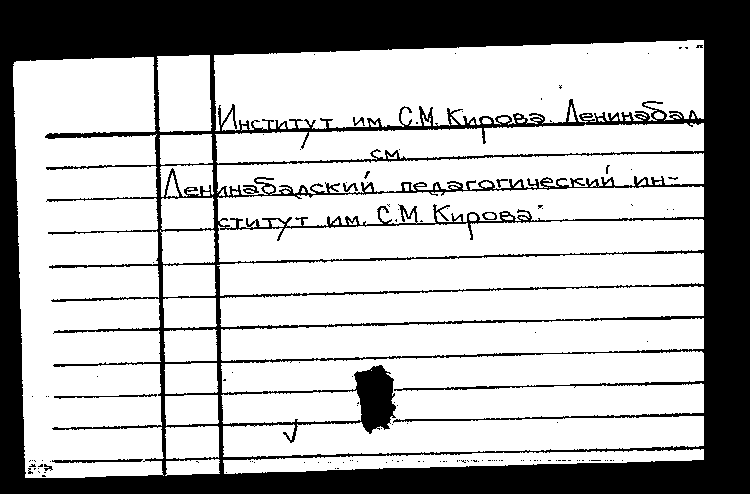 Институт им. С.М. Кирова. Ленинабад
см.
Ленинабадский педагогический ин-
ститут им. С.М. Кирова.